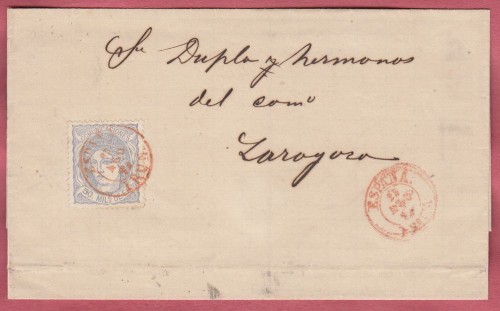 Sr Dupla y hermanos
del como
Zaragoza
50 MILS DE
ESPAÑA